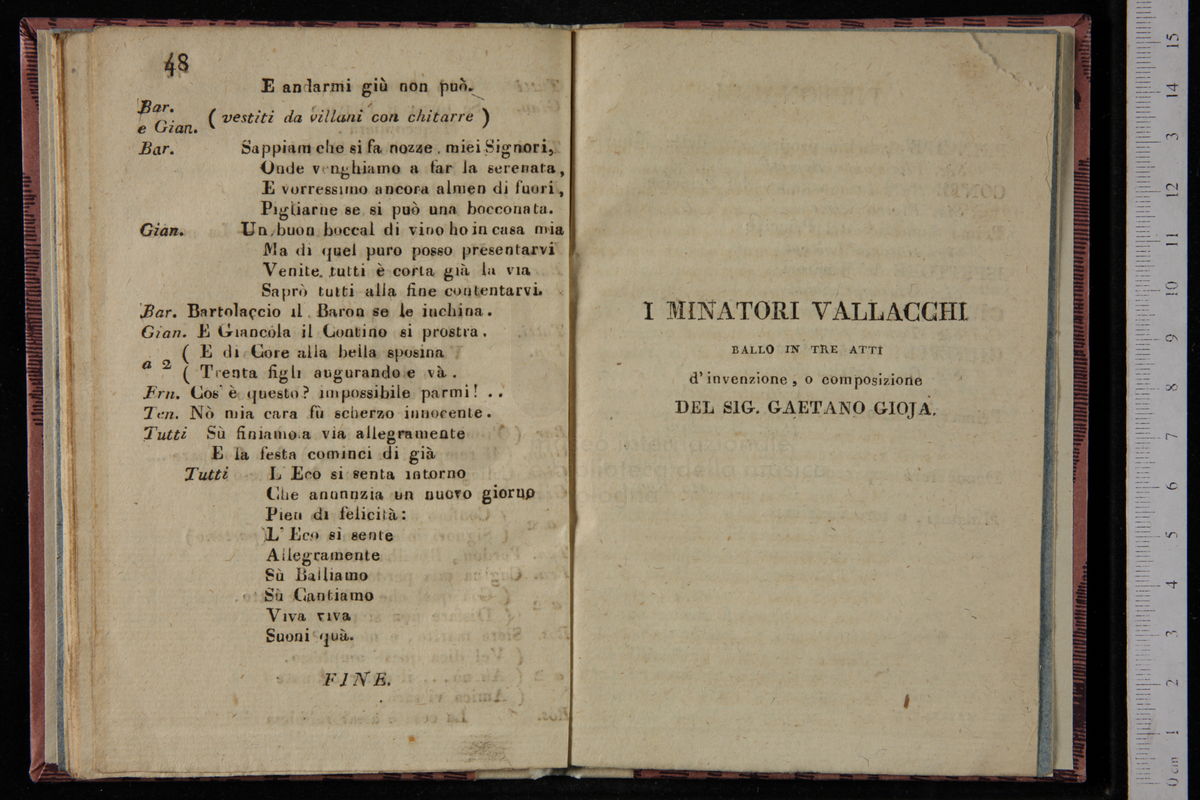 48
E andarmi giù non può.
Bar.
e Gian. ( vestiti da villani con chitarre )
Bar. Sappiam che si fa nozze, miei Signori,
Onde venghiamo a far la serenata,
E vorressimo ancora almen di fuori,
Pigliarne se si può una bocconata.
Gian. Un buon boccal di vino ho in casa mia
Ma di quel puro posso presentarvi
Venite, tutti è corta già la via
Saprò tutti alla fine contentarvi.
Bar. Bartolaccio il Baron se le inchina.
Gian. E Giancòla il Contino si prostra.
a 2 ( E di Core alla bella sposina
( Trenta figli augurando e và.
Ern. Cos' è questo? impossibile parmi! ..
Ten. Nò mia cara fù scherzo innocente.
Tutti Sù finiamo a via allegramente
E la festa cominci di già
Tutti L' Eco si senta intorno
Che anunnzia un nuovo giorno
Pien di felicità:
L' Eco si sente
Allegramente
Sù Balliamo
Sù Cantiamo
Viva viva
Suoni quà.
FINE.
I MINATORI VALLACCHI
BALLO IN TRE ATTI
d' invenzione, o composizione
DEL SIG. GAETANO GIOJA.
museo internazionale
e biblioteca della musica
bologna
0 cm 1 2 3 4 5 6 7 8 9 10 11 12 13 14 15